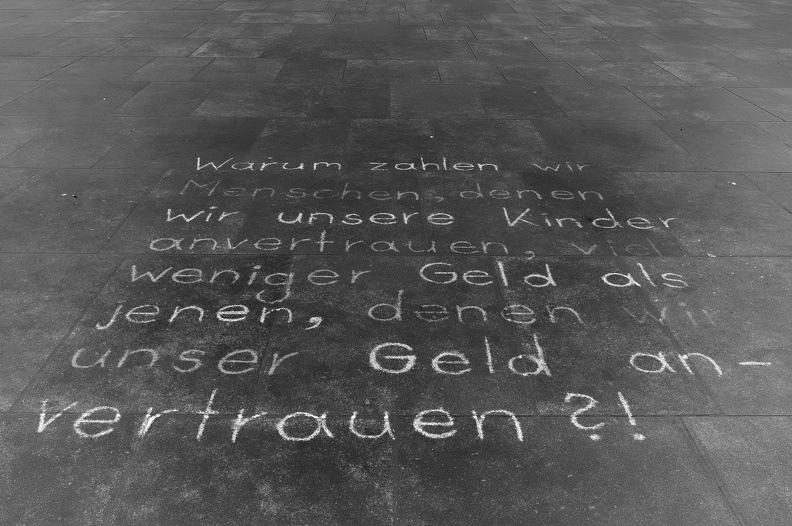 Warum zahlen wir
Menschen, denen
wir unsere Kinder
anvertrauen, viel
weniger Geld als
jenen, denen wir
unser Geld an-
vertrauen?!